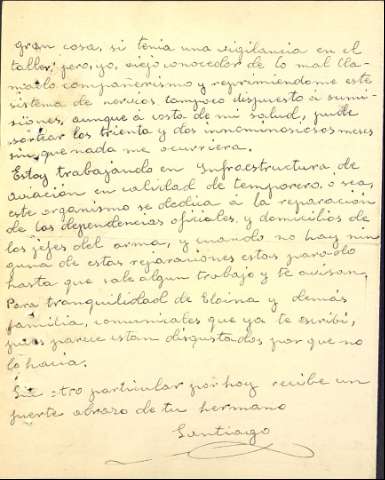 gran cosa, si tenia una vigilancia en el
taller, pero, yo, viejo conocedor de lo mal lla-
mado compañerismo y reprimiendome este
sistema de nervios, tampoco dispuesto á sumi-
siones, aunque á costa de mi salud, pude
sortear los trienta y dos innominosiosos meses
sin que nada me ocurriera.
Estoy trabajando en Ynfraestructura de
aviación en calidad de temporero, ó sea,
este organismo se dedica á la reparación
de las dependencias oficiales, y domicilios de
los jefes del arma, y cuando no hay nin
guna de estas reparaciones estas parado
hasta que sale algun trabajo y te avisan.
Para tranquilidad de Eloina y demás
familia, comunicales que ya te escribí,
pues parece estan disgustados por que no
lo hacia.
Sin otro particular por hoy recibe un
fuerte abrazo de tu hermano
Santiago